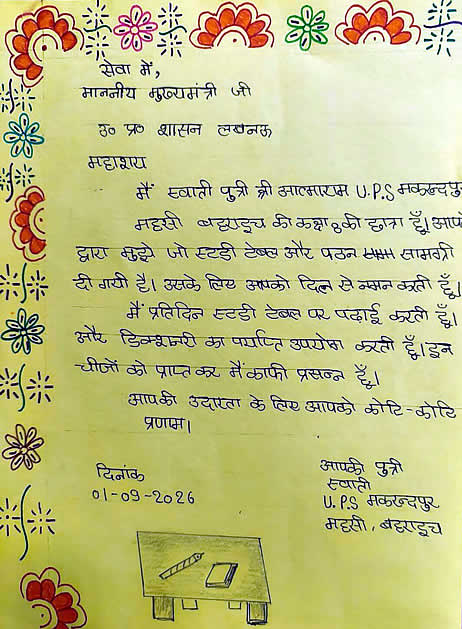 सेवा में,
माननीय मुख्यमंत्री जी
उ० प्र० शासन लखनऊ
महाशय
मैं स्वाती पुत्री श्री आत्माराम U.P.S मकरन्दपु
महसी बहराइच की कक्षा 8 की छात्रा हूँ। आप
द्वारा मुझे जो स्टडी टेबल और पठन सामग्री
दी गयी है। उसके लिए आपको दिल से नमन करती हूँ।
मैं प्रतिदिन स्टडी टेबल पर पढ़ाई करती हूँ।
और डिक्शनरी का पर्याप्त उपयोग करती हूँ। इन
चीजों को प्राप्त कर मैं काफी प्रसन्न हूँ।
आपकी उदारता के लिए आपको कोटि-कोटि
प्रणाम।
दिनांक
01-09-2026
आपकी पुत्री
स्वाती
U.P.S मकरन्दपुर
महसी, बहराइच